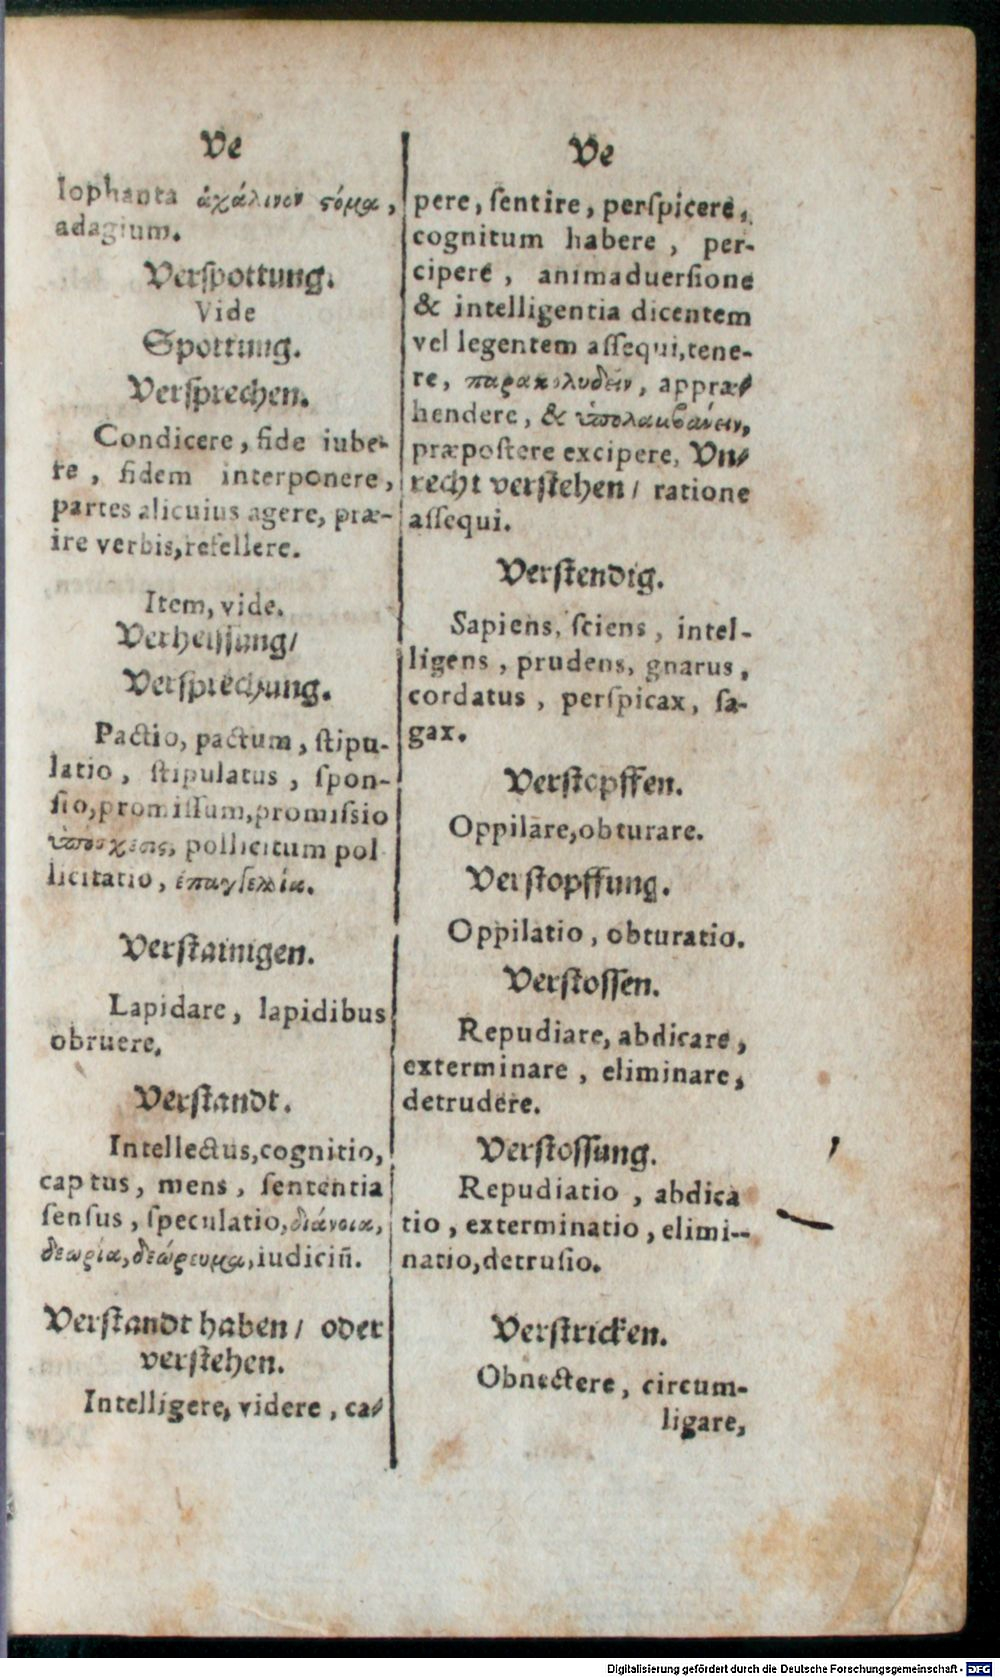 Ve
lophanta ἀχάλινον ϛόμα,
adagium.
Verſpottung.
Vide
Spottung.
Verſprechen.
Condicere, fide iube-
re, fidem interponere,
partes alicuius agere, præ-
ire verbis, refellere.
Item, vide.
Verheiſſung/
Verſprechung.
Pactio, pactum, ſtipu-
latio, ſtipulatus, ſpon-
ſio, promiſſum, promiſsio
ὑπόσχεσις, pollicitum pol
licitatio, ἐπαγγελία.
Verſtainigen.
Lapidare, lapidibus
obruere.
Verſtandt.
Intellectus, cognitio,
captus, mens, ſententia
ſenſus, ſpeculatio, διάνοια,
θεωρία, θεώρευμα, iudiciũ.
Verſtandt haben/ oder
verſtehen.
Intelligere, videre, ca-
Ve
pere, ſentire, perſpicere,
cognitum habere, per-
cipere, animaduerſione
& intelligentia dicentem
vel legentem aſſequi, tene-
re, παρακολυθεῖν, appræ-
hendere, & ὑπολαμβάνειν,
præpoſtere excipere, Vn-
recht verſtehen/ ratione
aſſequi.
Verſtendig.
Sapiens, ſciens, intel-
ligens, prudens, gnarus,
cordatus, perſpicax, ſa-
gax.
Verſtopffen.
Oppilare, obturare.
Verſtopffung.
Oppilatio, obturatio.
Verſtoſſen.
Repudiare, abdicare,
exterminare, eliminare,
detrudere.
Verſtoſſung.
Repudiatio, abdica
tio, exterminatio, elimi-
natio, detruſio.
Verſtricken.
Obnectere, circum-
ligare,
Digitalisierung gefördert durch die Deutsche Forschungsgemeinschaft - DFG